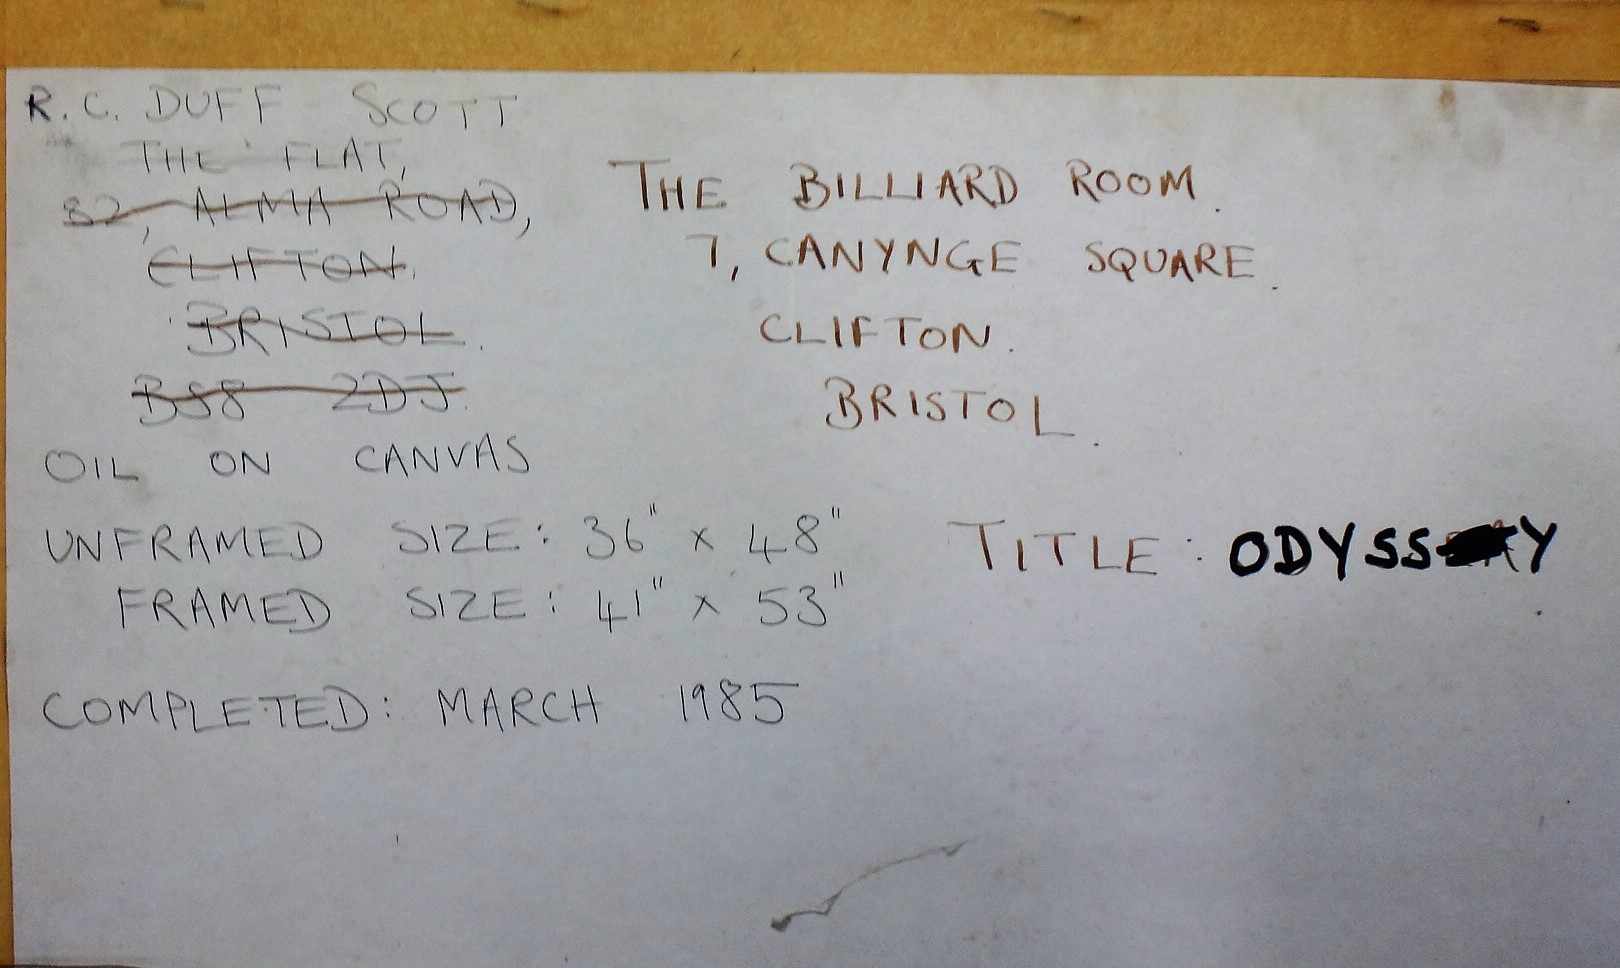 R. C. DUFF SCOTT
THE FLAT,
82, ALMA ROAD,
CLIFTON.
BRISTOL.
BS8 2DJ.
THE BILLIARD ROOM.
7, CANYNGE SQUARE.
CLIFTON.
BRISTOL.
OIL ON CANVAS
UNFRAMED SIZE: 36" x 48"
FRAMED SIZE: 41" x 53"
TITLE: ODYSSEY
COMPLETED: MARCH 1985